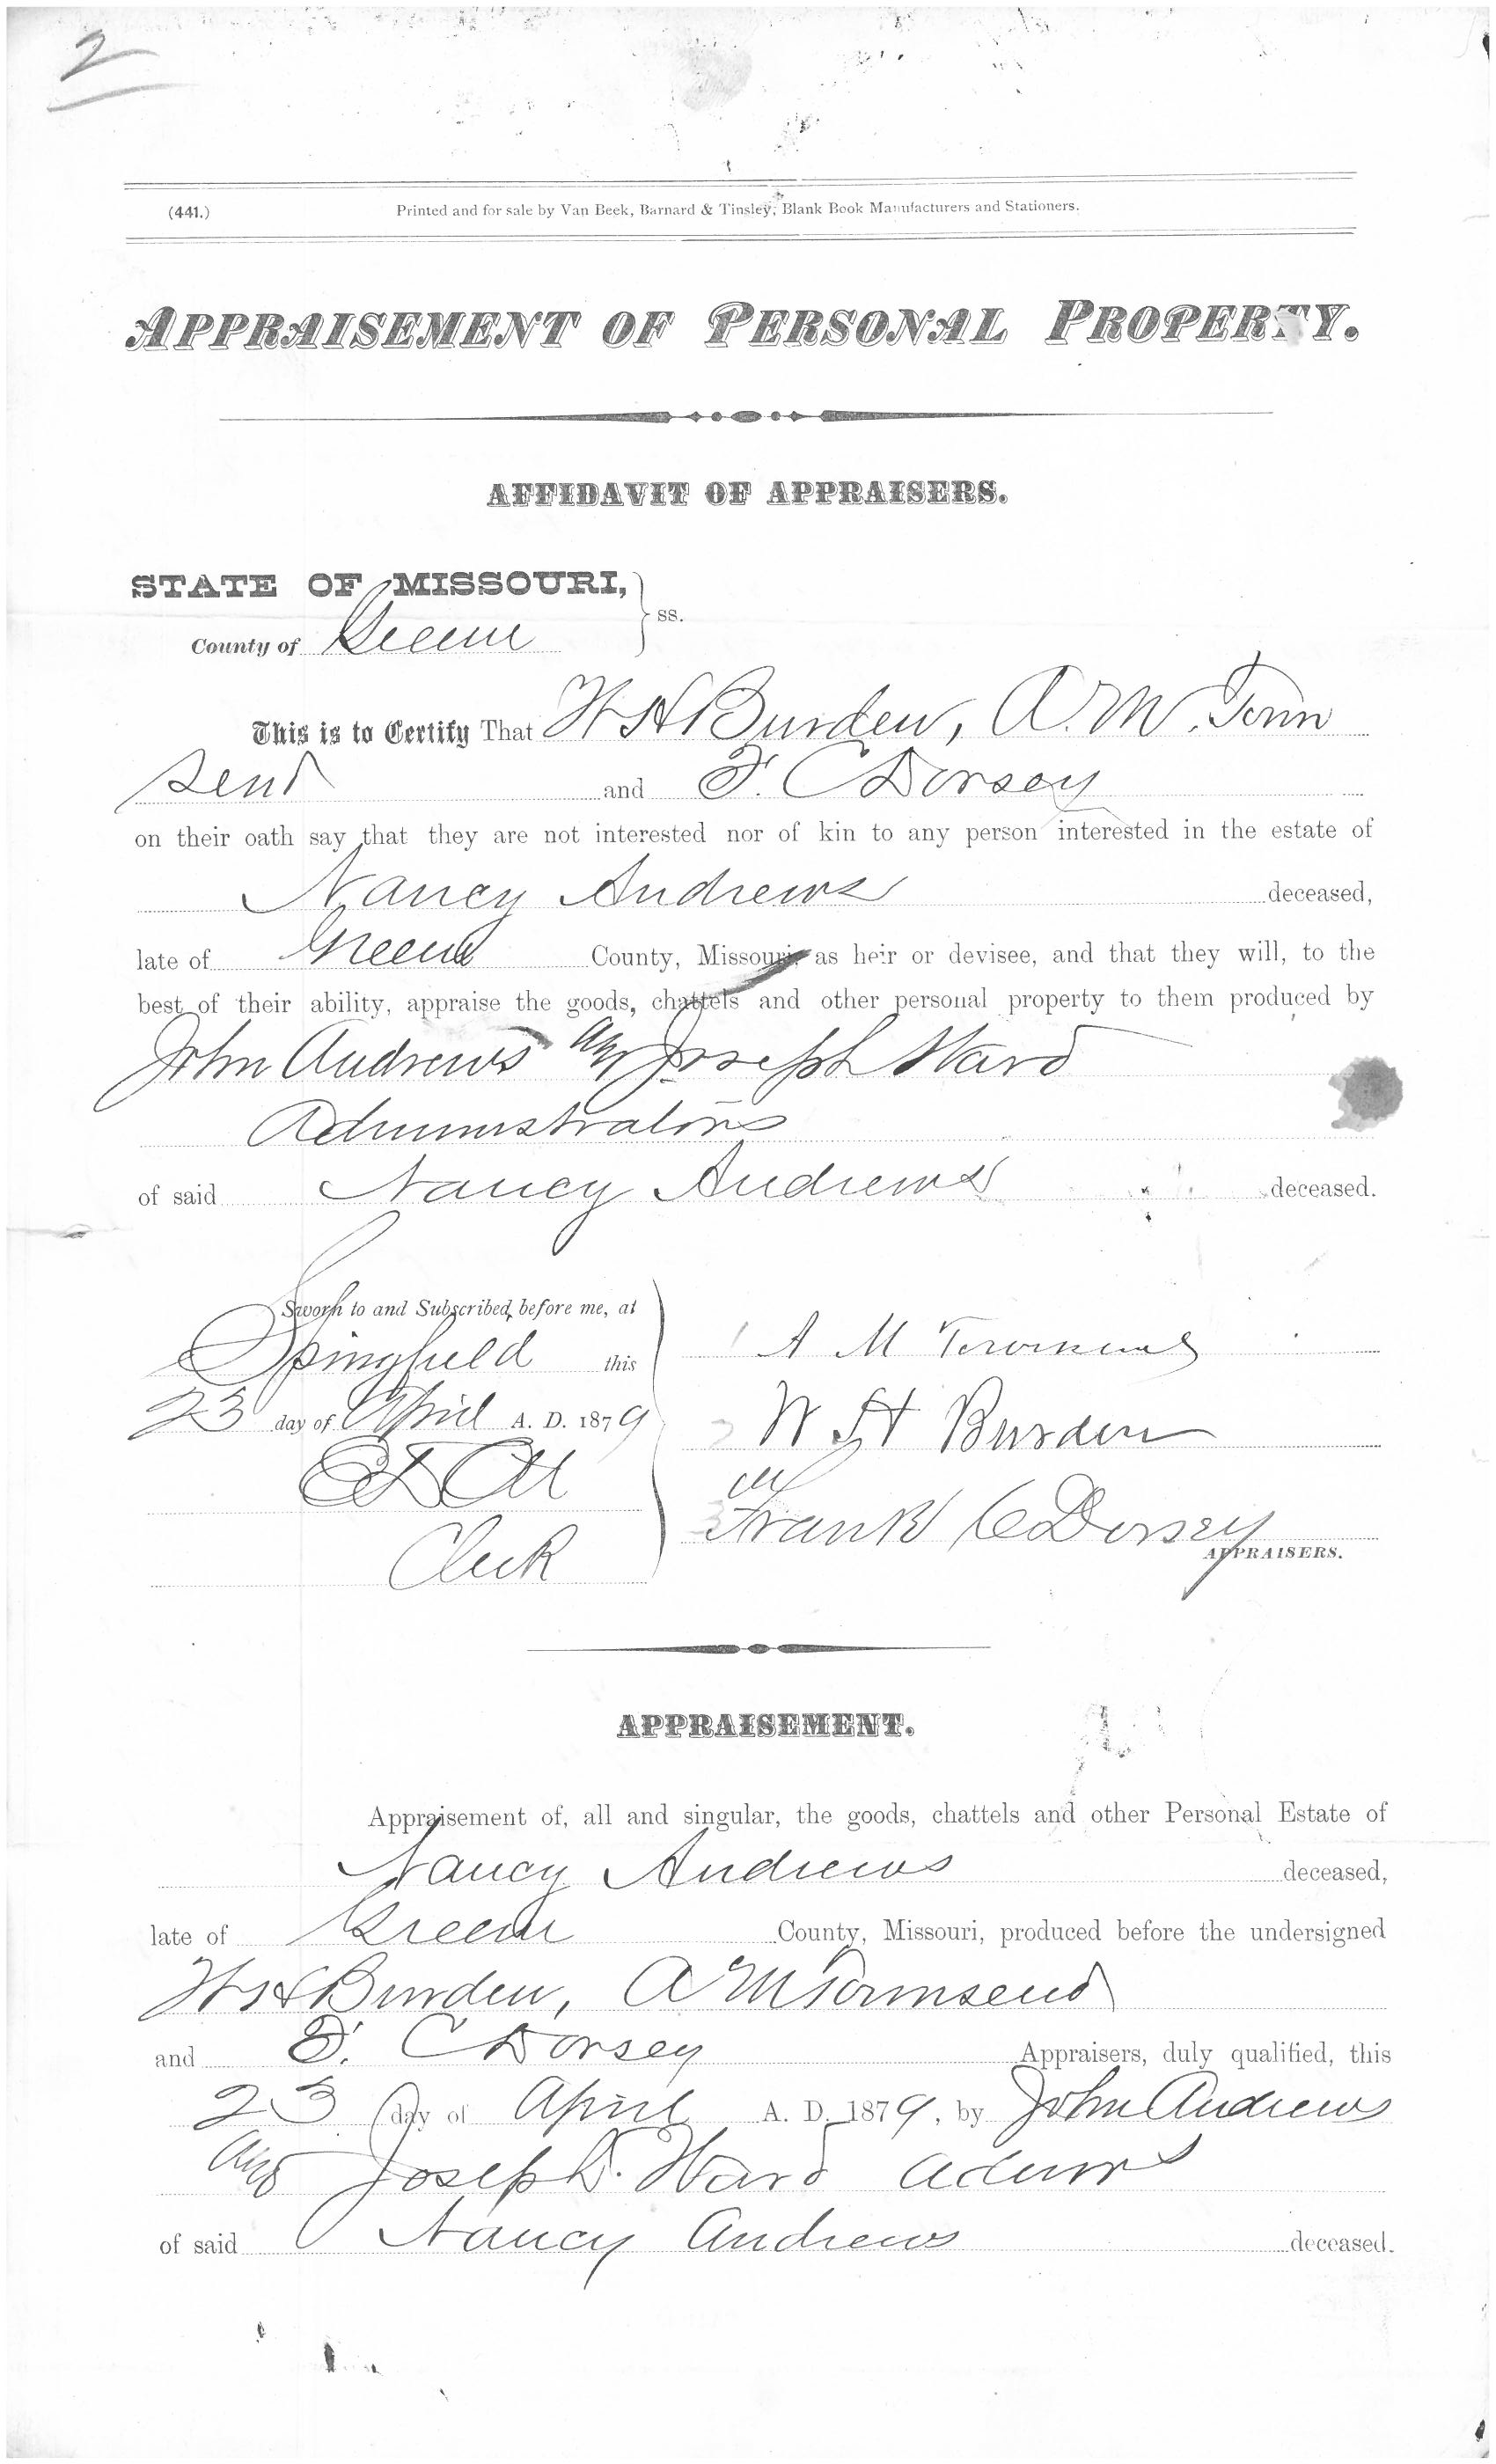 2
(441.) Printed and for sale by Van Beek, Barnard & Tinsley, Blank Book Manufacturers and Stationers.
APPRAISEMENT OF PERSONAL PROPERTY.
AFFIDAVIT OF APPRAISERS.
STATE OF MISSOURI, } ss.
County of Greene
This is to Certify That W H Burden, A. M. Town
send and F. C Dorsey
on their oath say that they are not interested nor of kin to any person interested in the estate of
Nancy Andrews deceased,
late of Greene County, Missouri, as heir or devisee, and that they will, to the
best of their ability, appraise the goods, chattels and other personal property to them produced by
John Andrews and Joseph Ward
Administrators
of said Nancy Andrews deceased.
Sworn to and Subscribed, before me, at
Springfield this 1 A M Townsend
23 day of April A. D. 1879 2 W H Burden
3 Frank C Dorsey
Clerk APPRAISERS.
APPRAISEMENT.
Appraisement of, all and singular, the goods, chattels and other Personal Estate of
Nancy Andrews deceased,
late of Greene County, Missouri, produced before the undersigned
W H Burden, A M Townsend
and F. C Dorsey Appraisers, duly qualified, this
23 day of April A. D. 1879, by John Andrews
and Joseph. Ward admrs
of said Nancy Andrews deceased.